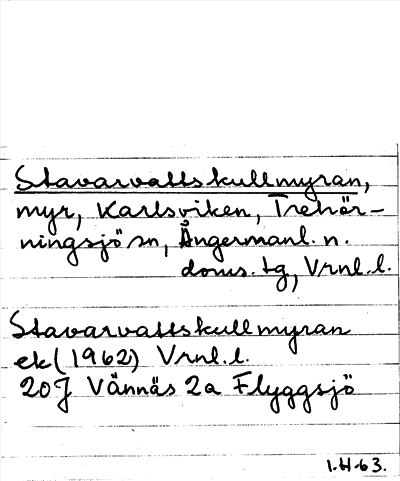 Stavarvattskullmyran,
myr, Karlsviken, Trehör-
ningsjö sn, Ångermanl. n.
doms. tg, Vrnl.l.
Stavarvattskullmyran
ek (1962) Vrnl.l.
20J Vännäs 2a Flyggsjö
1.H.63.